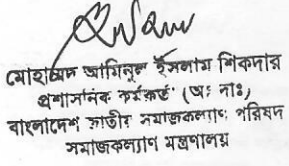 মোহাম্মদ আমিনুল ইসলাম শিকদার
প্রশাসনিক কর্মকর্তা (অঃ দাঃ)
বাংলাদেশ জাতীয় সমাজকল্যাণ পরিষদ
সমাজকল্যাণ মন্ত্রণালয়